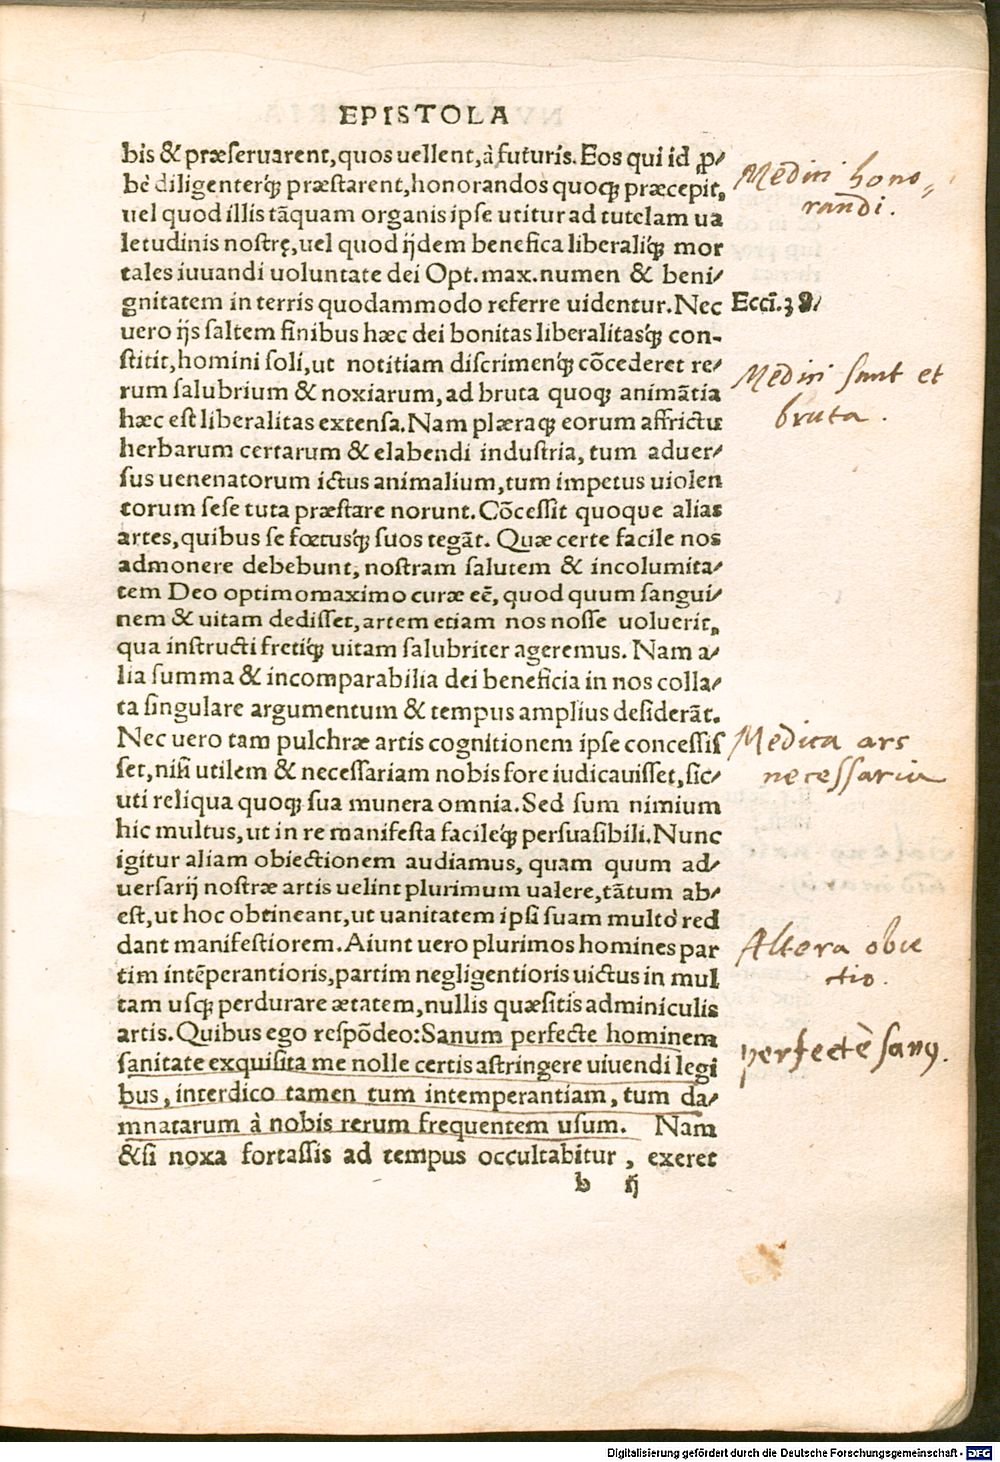 EPISTOLA
bis & præseruarent, quos uellent, à futuris. Eos qui id ꝓ⸗
bè diligenterq́ꝫ præstarent, honorandos quoqꝫ præcepit,
uel quod illis tāquam organis ipse utitur ad tutelam ua
letudinis nostrę, uel quod ijdem benefica liberaliq́ꝫ mor
tales iuuandi uoluntate dei Opt. max. numen & beni⸗
gnitatem in terris quodammodo referre uidentur. Nec
uero ijs saltem finibus hæc dei bonitas liberalitasq́ꝫ con-
stitit, homini soli, ut notitiam discrimenq́ꝫ cōcederet re⸗
rum salubrium & noxiarum, ad bruta quoqꝫ animātia
hæc est liberalitas extensa. Nam plæraqꝫ eorum affrictu
herbarum certarum & elabendi industria, tum aduer⸗
sus uenenatorum ictus animalium, tum impetus uiolen
torum sese tuta præstare norunt. Cōcessit quoque alias
artes, quibus se fœtusq́ꝫ suos tegāt. Quæ certe facile nos
admonere debebunt, nostram salutem & incolumita⸗
tem Deo optimomaximo curæ eē, quod quum sangui⸗
nem & uitam dedisset, artem etiam nos nosse uoluerit,
qua instructi fretiq́ꝫ uitam salubriter ageremus. Nam a⸗
lia summa & incomparabilia dei beneficia in nos colla⸗
ta singulare argumentum & tempus amplius desiderāt.
Nec uero tam pulchræ artis cognitionem ipse concessis
set, nisi utilem & necessariam nobis fore iudicauisset, sic⸗
uti reliqua quoqꝫ sua munera omnia. Sed sum nimium
hic multus, ut in re manifesta facileq́ꝫ persuasibili. Nunc
igitur aliam obiectionem audiamus, quam quum ad⸗
uersarij nostræ artis uelint plurimum ualere, tātum ab⸗
est, ut hoc obtineant, ut uanitatem ipsi suam multò red
dant manifestiorem. Aiunt uero plurimos homines par
tim intēperantioris, partim negligentioris uictus in mul
tam usqꝫ perdurare ætatem, nullis quæsitis adminiculis
artis. Quibus ego respōdeo: Sanum perfecte hominem
sanitate exquisita me nolle certis astringere uiuendi legi
bus, interdico tamen tum intemperantiam, tum da⸗
mnatarum à nobis rerum frequentem usum. Nam
& si noxa fortassis ad tempus occultabitur, exeret
b ij
Medici hono⸗
randi.
Ecci. 38
Medici sunt et
bruta.
Medica ars
necessaria
Altera obie
ctio.
perfectè sanꝰ.
Digitalisierung gefördert durch die Deutsche Forschungsgemeinschaft - DFG